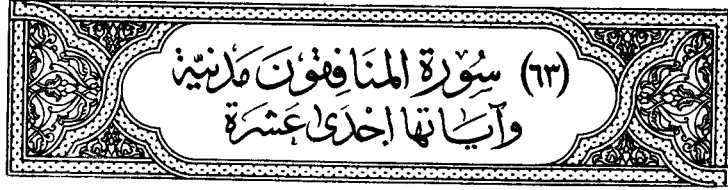 (٦٣) سُوْرَة المنَافِقوْنَ مَدَنيّة
وآيَاتها اِحْدَىٰ عَشرَة